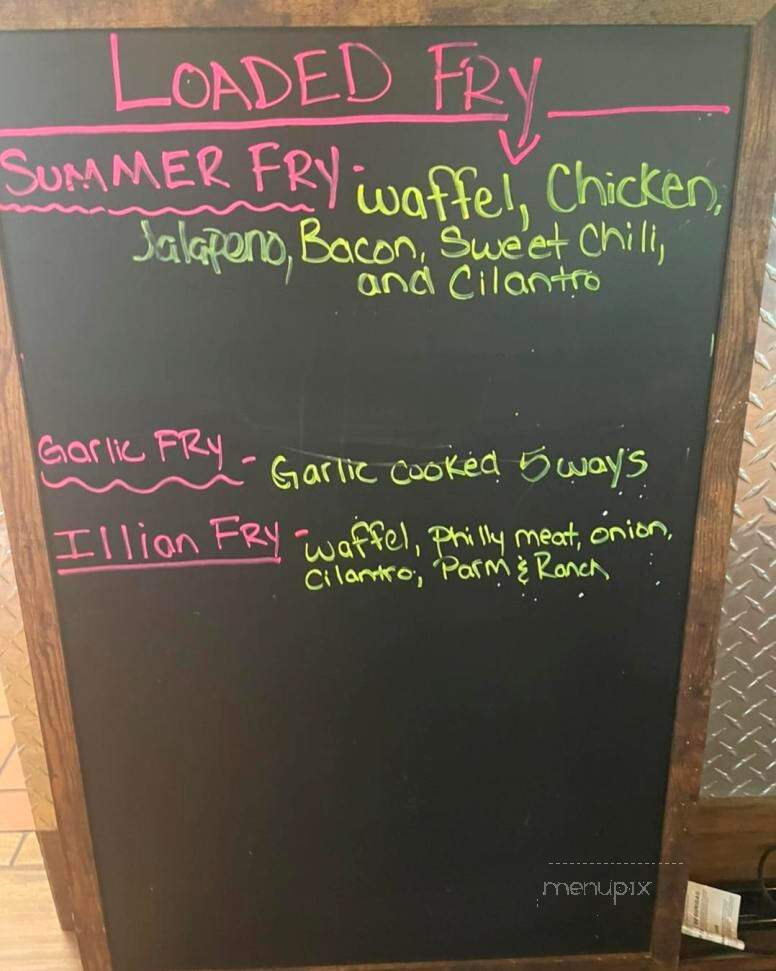 LOADED FRY
SUMMER FRY - waffel, Chicken,
Jalapeno, Bacon, Sweet Chili,
and Cilantro
Garlic FRY - Garlic cooked 5 ways
Illian FRY - waffel, Philly meat, onion,
cilantro, Parm & Ranch
menupix